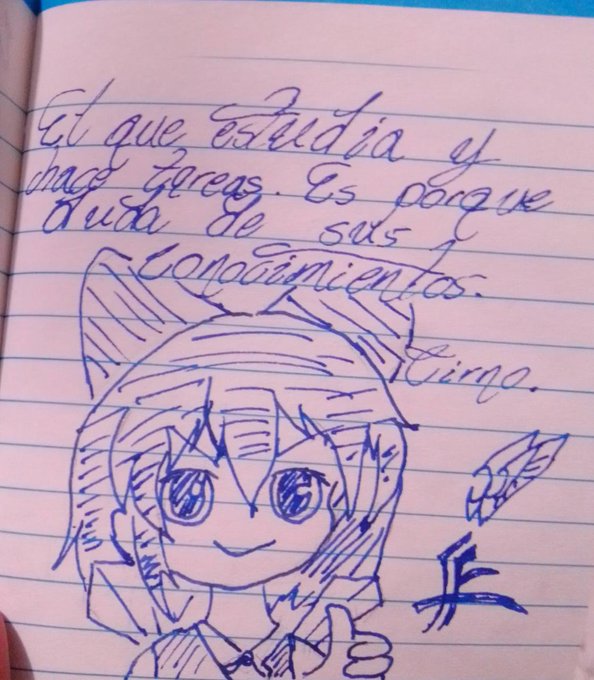 El que estudia y
hace tareas. Es porque
duda de sus
conocimientos.
Cirno.